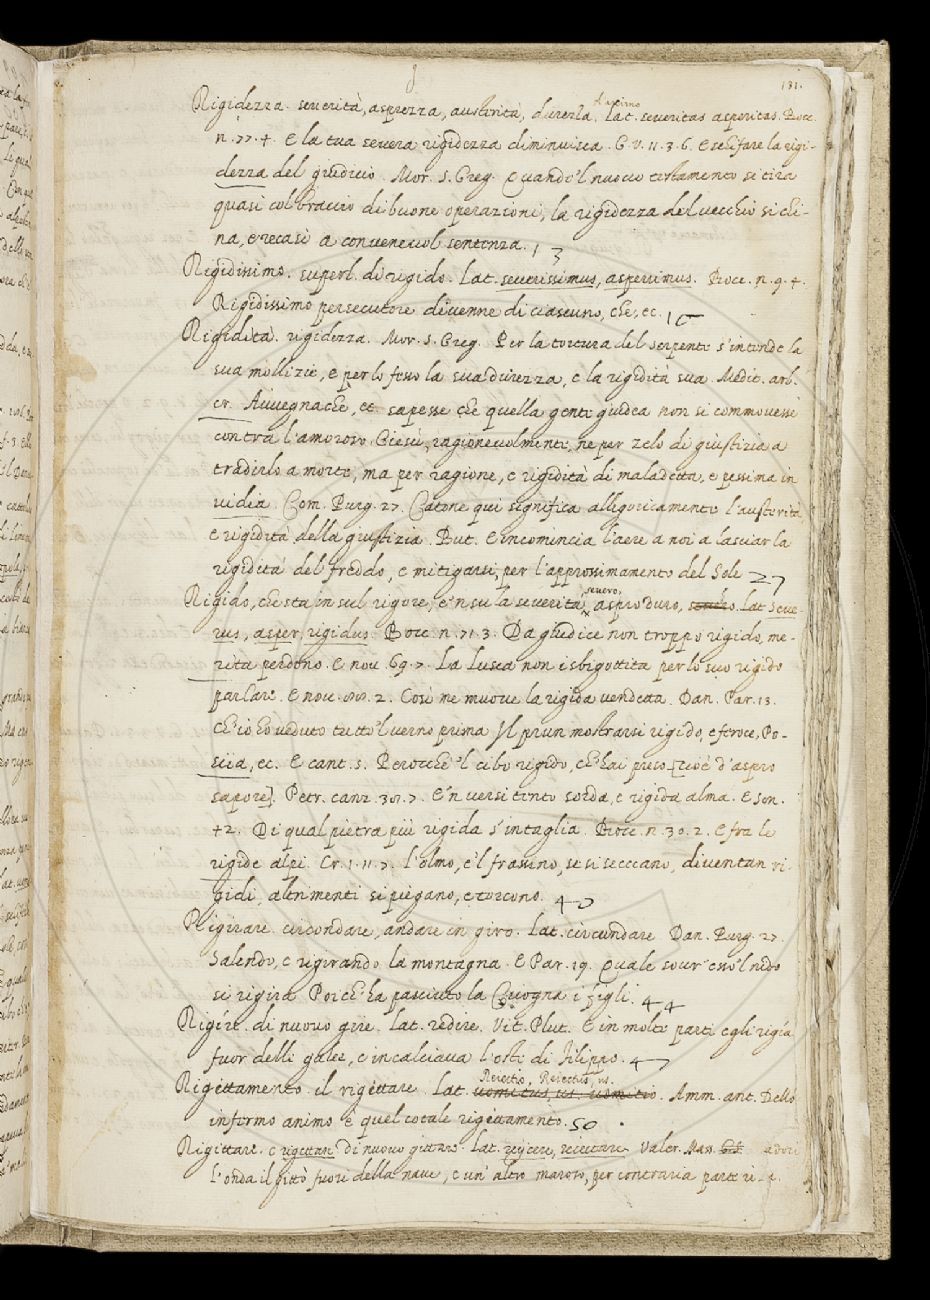 131.
Rigidezza. severità, asprezza, austerità, durezza. Lat. severitas asperitas. Bocc.
n. 77. 4. E la tua severa rigidezza diminuisca. G. V. 11. 3. 6. E schifare la rigi-
dezza del giudicio. Mor. S. Greg. Quando'l nuovo testamento si tira
quasi col braccio di buone operazioni, la rigidezza del vecchio si chi-
na, e recasi a convenevol sentenza. 13
Rigidissimo. superl. di rigido. Lat. severissimus, asperrimus. Bocc. n. 9. 4.
Rigidissimo persecutore divenne di ciascuno, che, ec. 16
Rigidità. rigidezza. Mor. S. Greg. Per la tortura del serpente s'intende la
sua mollizie, e per lo fesso la sua durezza, e la rigidità sua. Medit. arb.
cr. Avvegnache, ec. sapesse che quella gente giudea non si commovesse
contra l'amoroso Giesù, ragionevolmente, ne per zelo di giustizia a
tradirlo a morte, ma per ragione, e rigidità di maladetta, e pessima in
vidia. Com. Purg. 27. Catone qui significa allegoricamente l'austerità,
e rigidità della giustizia. But. E incomincia l'aere a noi a lasciar la
rigidità del freddo, e mitigarsi, per l'approssimamento del Sole 27
severo,
Rigido, che sta in sul rigore, e'n su la severità, aspro duro, severo. Lat. Seve-
rus, asper, rigidus. Bocc. n. 71. 3. Da giudice non troppo rigido, me-
rita perdono. E nov. 69. 7. La Lusca non isbigottita per lo suo rigido
parlare. E nov. 2. Così ne muove la rigida vendetta. Dan. Par. 13.
Ch'io ho veduto tutto'l verno prima Il prun mostrarsi rigido, e feroce, Po-
scia, ec. E cant. 5. Perocchè'l cibo rigido, c'hai preso [cioè d'aspro
sapore]. Petr. canz. 7. E'n versi tento sorda, e rigida alma. E son.
42. Di qual pietra più rigida s'intaglia. Bocc. n. 30. 2. E fra le
rigide alpi. Cr. 1. 11. 7. l'olmo, e'l frassino, se si seccano, diventan ri-
gidi, altrimenti si piegano, e torcono. 40
Rigirare. circondare, andare in giro. Lat. circundare. Dan. Purg. 27.
Salendo, e rigirando la montagna. E Par. 19. Quale sovr'esso'l nido
si rigira Poich' ha pasciuto la Cicogna i figli. 44
Rigire. di nuovo gire. Lat. redire. Vit. Plut. E in molte parti egli rigìa
fuor delli galee, e incalciava l'osti di Filippo. 47
Reiectio, Reiectus, us.
Rigettamento. il rigettare. Lat. vomitus, us. vomitio. Amm. ant. Dello
infermo animo è quel cotale rigettamento. 50
Rigittare. e rigettare di nuovo gittare. Lat. reijcere, reiectare. Valer. Mass.
l'onda il gittò fuori della nave, e un'altro maroso, per contraria parte